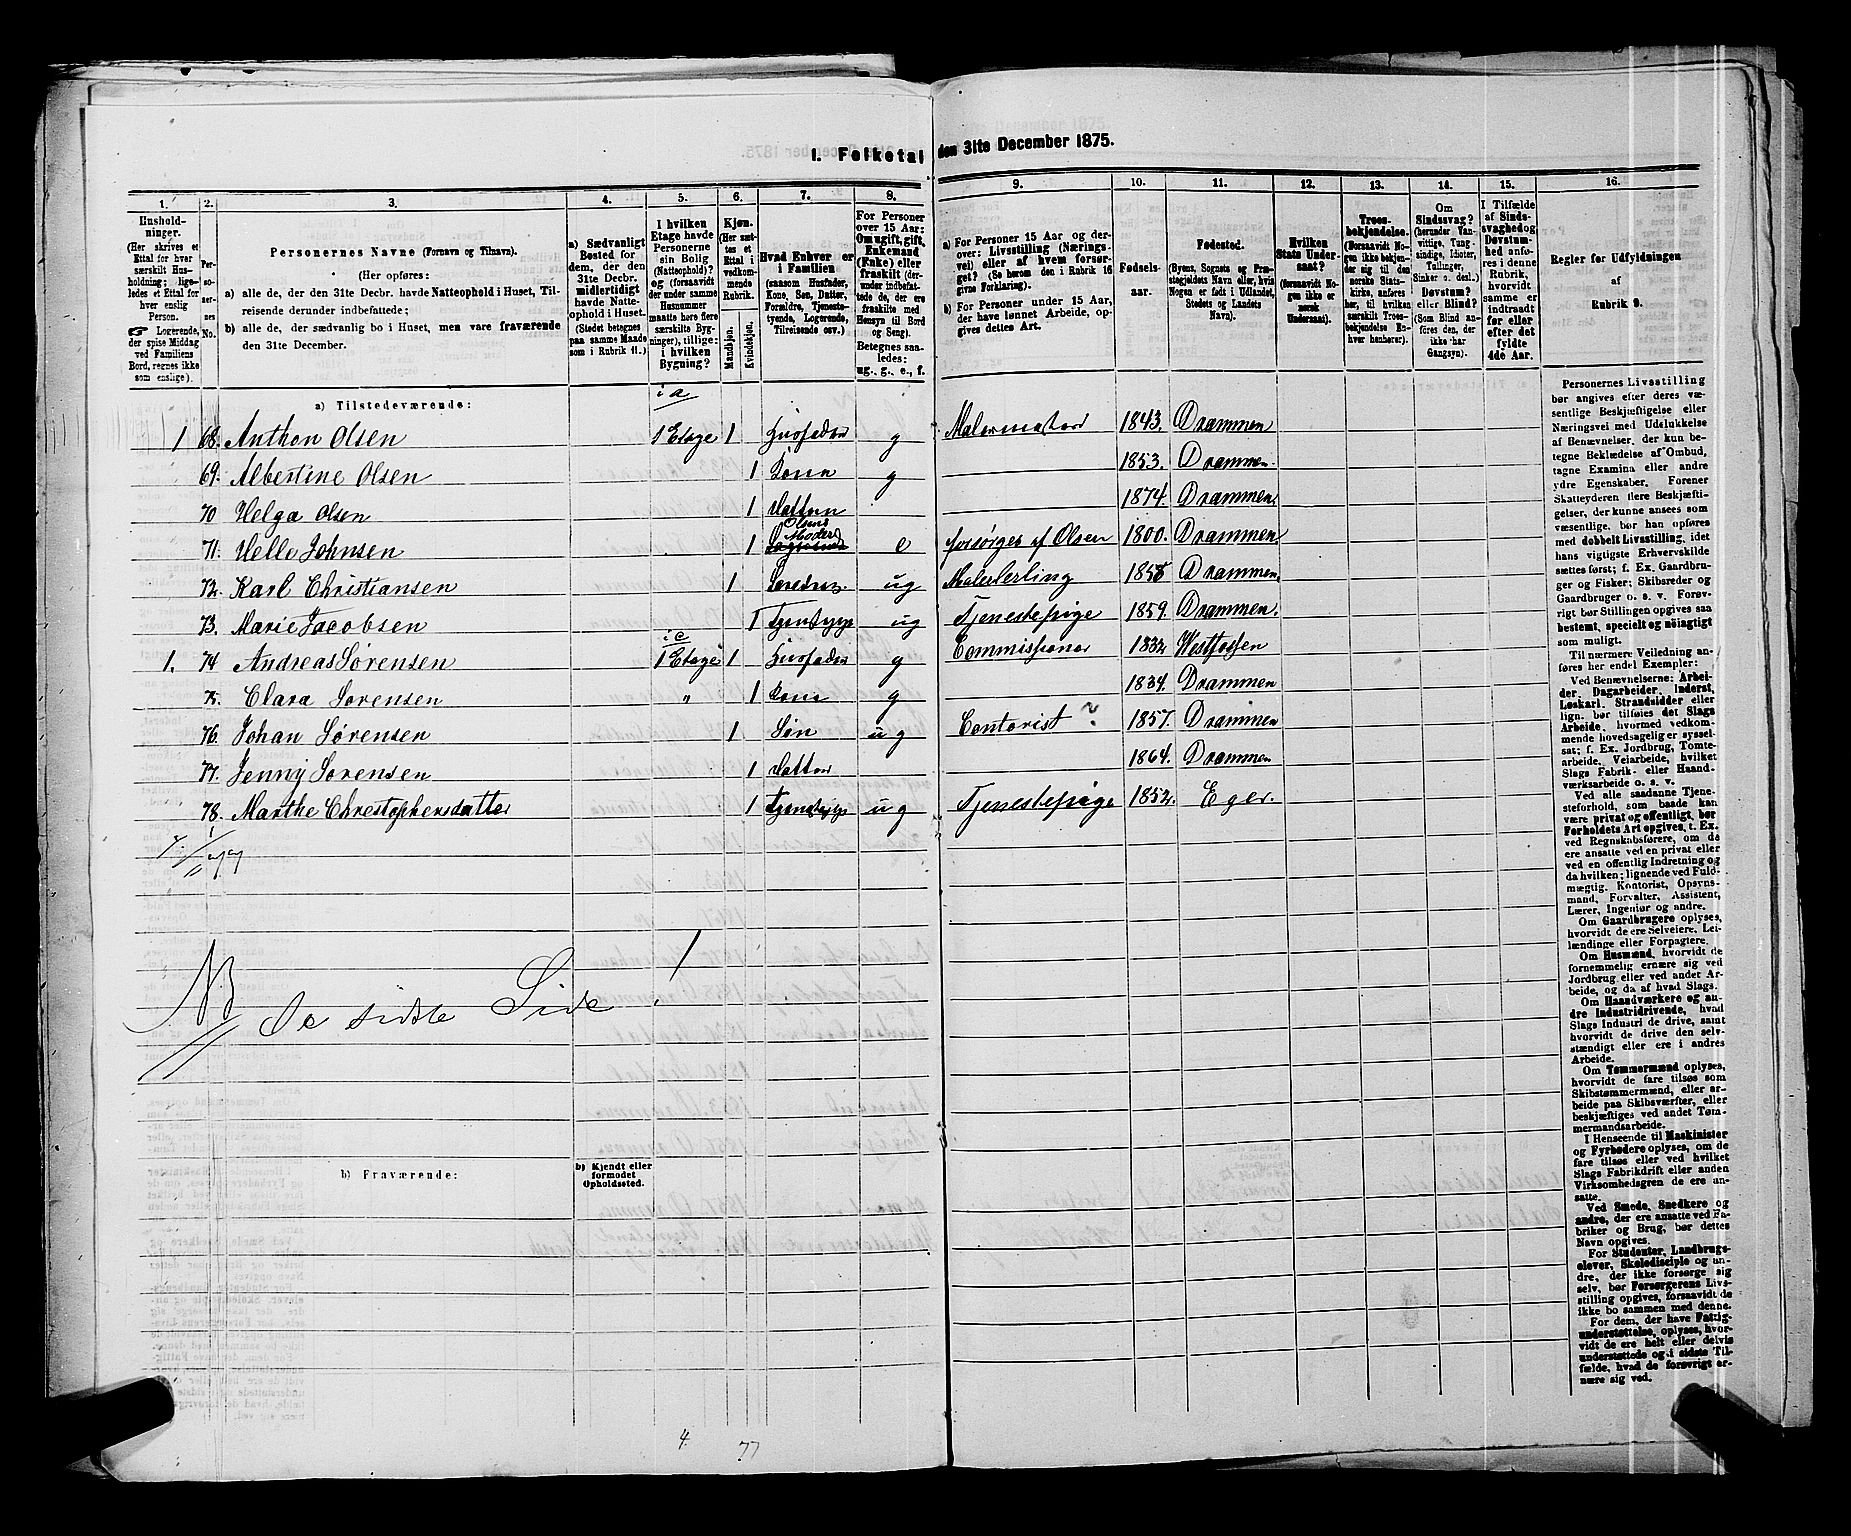 I. Folketal den 31te December 1875.
1. 2. 3. 4. 5. 6. 7. 8. 9. 10. 11. 12. 13. 14. 15. 16.
Husholdninger.
(Her skrives et Ettal for hver særskilt Husholdning; ligeledes et Ettal for hver enslig Person.
☞ Logerende, der spise Middag ved Familiens Bord, regnes ikke som enslige).
Personernes No.
Personernes Navne (Fornavn og Tilnavn).
(Her opføres:
a) alle de, der den 31te Decbr. havde Natteophold i Huset, Tilreisende derunder indbefattede;
b) alle de, der sædvanlig bo i Huset, men vare fraværende den 31te December.
a) Sædvanligt Bosted for dem, der den 31te Decbr. midlertidigt havde Natteophold i Huset.
(Stedet betegnes paa samme Maade som i Rubrik 11.)
I hvilken Etage havde Personerne sin Bolig (Natteophold)? og (forsaavidt der under samme Husnummer maatte høre flere særskilte Bygninger), tillige: i hvilken Bygning?
Kjøn.
(Her sættes et Ettal i vedkommende Rubrik.
Mandkjøn.
Kvindekjøn.
Hvad Enhver er i Familien
(saasom Husfader, Kone, Søn, Datter, Forældre, Tjenestetyende, Logerende, Tilreisende osv.)
For Personer over 15 Aar: Om ugift, gift, Enkemand (Enke) eller fraskilt (derunder indbefattede de, der ere fraskilte med Hensyn til Bord og Seng).
Betegnes saaledes: ug., g., e., f.
a) For Personer 15 Aar og derover: Livsstilling (Næringsvei) eller af hvem forsørget? (Se herom den i Rubrik 16 givne Forklaring).
b) For Personer under 15 Aar, der have lønnet Arbeide, opgives dettes Art.
Fødselsaar.
Fødested.
(Byens, Sognets og Præstegjeldets Navn eller, hvis Nogen er født i Udlandet, Stedets og Landets Navn).
Hvilken Stats Undersaat?
(forsaavidt Nogen ikke er norsk Undersaat).
Troesbekjendelse.
(forsaavidt Nogen ikke bekjender sig til den norske Statskirke, anføres her, til hvilken særskilt Troesbekjendelse Enhver henhører).
Om Sindssvag?
(herunder Vanvittige, Tungsindige, Idioter, Tullinger, Sinker o. desl.)
Døvstum? eller Blind?
(Som Blind anføres den, der ikke har Gangsyn).
I Tilfælde af Sindssvaghed og Døvstumhed anføres i denne Rubrik, hvorvidt samme er indtraadt før eller efter det fyldte 4de Aar.
Regler for Udfyldningen af Rubrik 9.
a) Tilstedeværende:
i a
1 68. Anthon Olsen 1 Etage 1 Husfader g Malermester 1843. Drammen
69. Albertine Olsen 1 Kone g 1853. Drammen.
70 Helga Olsen 1 Datter 1874. Drammen.
71. Helle Johnsen 1 Olsens Moder e forsørges af Olsen 1800. Drammen.
72. Karl Christiansen 1 ug Malerlerling 1858 Drammen.
73. Marie Jacobsen 1 ug Tjenestepige 1859. Drammen.
i c
1. 74 Andreas Sørensen 1 Etage 1 Husfader g Commissionær 1832 Westfossen
75. Clara Sørensen " 1 Kone g 1834. Drammen
76. Johan Sørensen 1 Søn ug Contorist ? 1857. Drammen
77. Jenny Sørensen 1 Datter 1864. Drammen
78. Marthe Christophersdatter 1 ug Tjenestepige 1852. Eger.
NB De sidste Side !
b) Fraværende:
b) Kjendt eller formodet Opholdssted.
4. 77
Personernes Livsstilling bør angives efter deres væsentlige Beskjæftigelse eller Næringsvei med Udelukkelse af Benævnelser, der kun betegne Beklædelse af Ombud, tagne Examina eller andre ydre Egenskaber. Forener Skatteyderen flere Beskjæftigelser, der kunne ansees som væsentlige, bør han opføres med dobbelt Livsstilling, idet hans vigtigste Erhvervskilde sættes først; f. Ex. Gaardbruger og Fisker; Skibsreder og Gaardbruger o. s. v. Forøvrigt bør Stillingen opgives saa bestemt, specielt og nøiagtigt som muligt.
Til nærmere Veiledning anføres her endel Exempler:
Ved Benævnelserne: Arbeider, Dagarbeider, Inderst, Løskarl, Strandsidder eller lign. bør tilføies det Slags Arbeide, hvormed vedkommende hovedsagelig er sysselsat; f. Ex. Jordbrug, Tomtearbeide, Veiarbeide, hvilket Slags Fabrik- eller Haandværksarbeide o. s. v.
Ved alle saadanne Tjenesteforhold, som baade kan være privat og offentligt, bør Forholdets Art opgives, t. Ex. ved Regnskabsførere, om de ere ansatte ved en privat eller ved en offentlig Indretning og da hvilken; lignende ved Fuldmægtig, Kontorist, Opsynsmand, Forvalter, Assistent, Lærer, Ingeniør og andre.
Om Gaardbrugere oplyses, hvorvidt de ere Selveiere, Leilændinge eller Forpagtere.
Om Husmænd, hvorvidt de fornemmelig ernære sig ved Jordbrug eller ved andet Arbeide, og da af hvad Slags.
Om Haandværkere og andre Industridrivende, hvad Slags Industri de drive, samt hvorvidt de drive den selvstændigt eller ere i andres Arbeide.
Om Tømmermænd oplyses, hvorvidt de fare tilsøs som Skibstømmermænd, eller arbeide paa Skibsværfter, eller beskjæftiges ved andet Tømmermandsarbeide.
I Henseende til Maskinister og Fyrbødere oplyses, om de fare tilsøs eller ved hvilket Slags Fabrikdrift eller anden Virksomhedsgren de ere ansatte.
Ved Smede, Snedkere og andre, der ere ansatte ved Fabriker og Brug, bør dettes Navn opgives.
For Studenter, Landbrugselever, Skoledisciple og andre, der ikke forsørge sig selv, bør Forsørgerens Livsstilling opgives, forsaavidt de ikke bo sammen med denne.
For dem, der have Fattigunderstøttelse, oplyses, hvorvidt de ere helt eller delvis understøttede og i sidste Tilfælde, hvad de forøvrigt ernære sig ved.